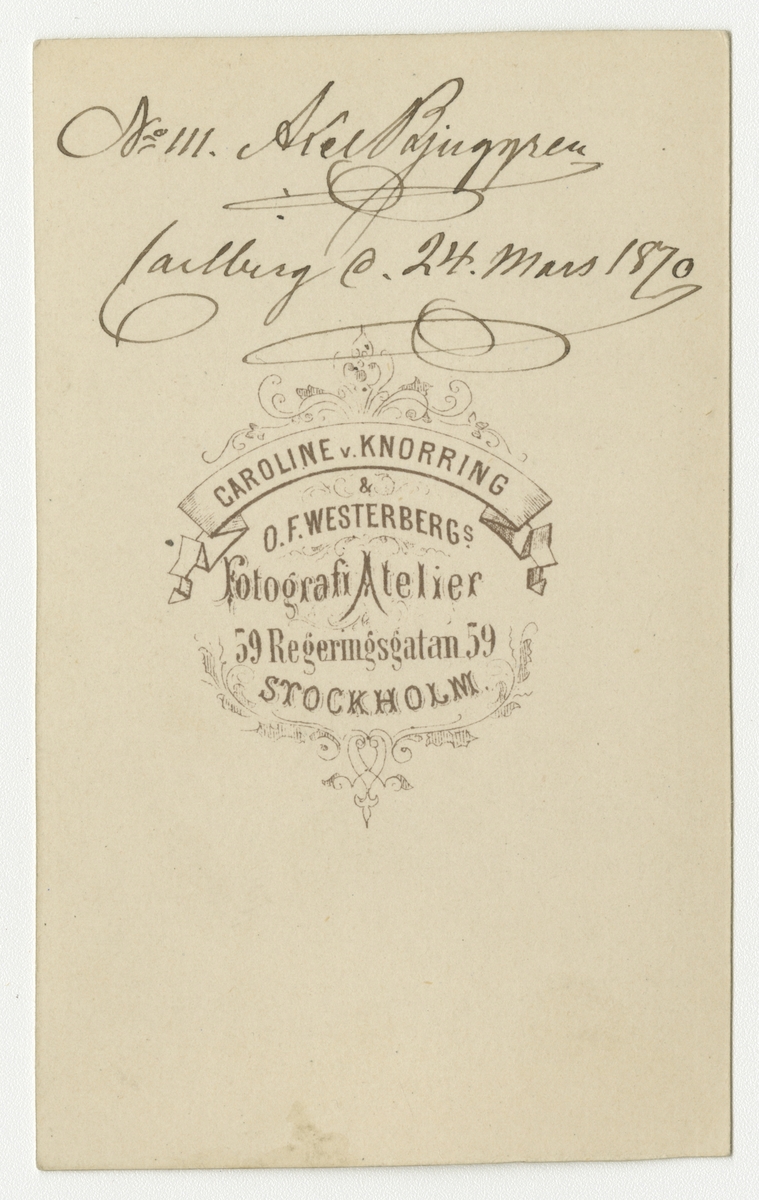 No 111. Axel Bjuggren
Carlberg d. 24. Mars 1870
CAROLINE v. KNORRING
&
O.F. WESTERBERGS
Fotografi Atelier
59 Regeringsgatan 59
STOCKHOLM.